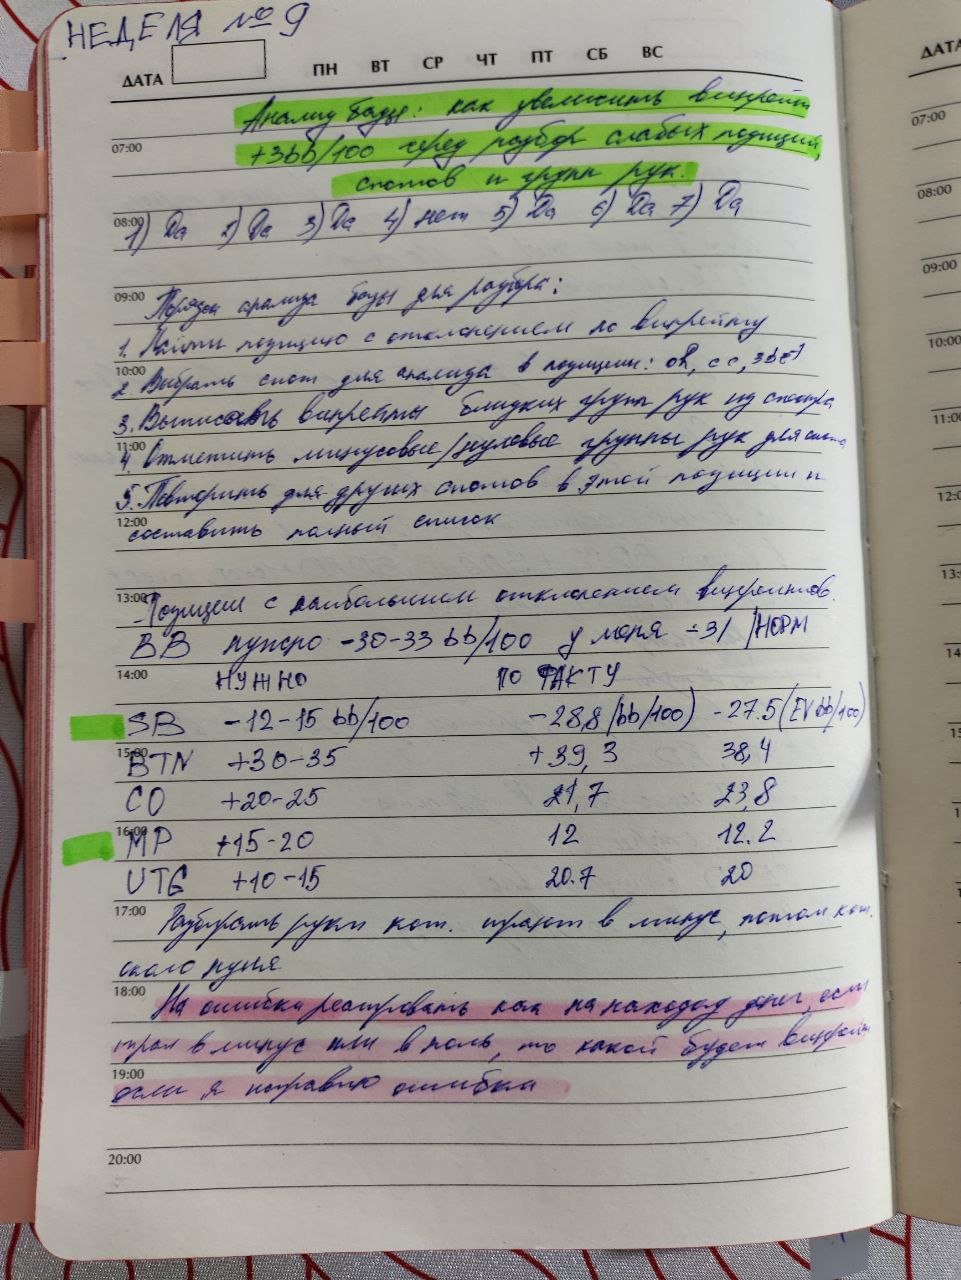 НЕДЕЛЯ №9
ДАТА ПН ВТ СР ЧТ ПТ СБ ВС ДАТА
Анализ базы: как увеличить винрейт
07:00 +3bb/100 через разбор слабых позиций,
спотов и групп рук.
08:00 1) Да 2) Да 3) Да 4) нет 5) Да 6) Да 7) Да
09:00
Порядок анализа базы для разбора:
1. Найти позицию с отклонением по винрейту
10:00
2. Выбрать спот для анализа в позиции: OR, cc, 3bet
3. Выписать винрейты близких групп рук из спотра
11:00
4. Отметить минусовые/нулевые группы рук для
5. Повторить для других спотов в этой позиции и
12:00
составить полный список
13:00 -Позиции с наибольшим отклонением винрейтов.
BB нужно -30-33 bb/100 у меня -31 /НОРМ
14:00 НУЖНО ПО ФАКТУ
SB -12-15 bb/100 -28,8 (bb/100) -27.5 (EV bb/100)
15:00
BTN +30-35 +39,3 38,4
CO +20-25 21,7 23,8
16:00
MP +15-20 12 12.2
UTG +10-15 20.7 20
17:00
Разбирать руки кот. играют в минус, потом кот.
около нуля
18:00
На ошибки реагировать как на находку денег, если
играл в минус или в ноль, то какой будет винрейт
19:00
если я исправлю ошибки
20:00
07:00
08:00
09:00
10:00
11:00
12:0
13:
14
1